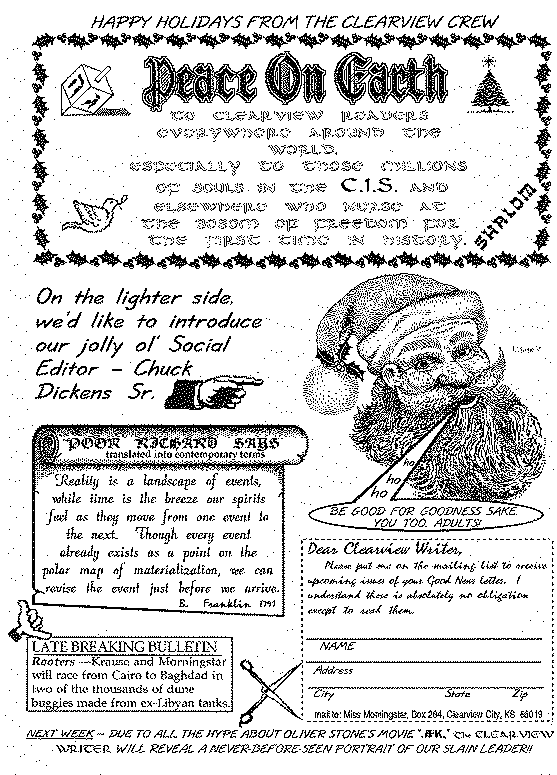 HAPPY HOLIDAYS FROM THE CLEARVIEW CREW
Peace On Earth
TO CLEARVIEW READERS
EVERYWHERE AROUND THE
WORLD.
ESPECIALLY TO THOSE MILLIONS
OF SOULS IN THE C.I.S. AND
ELSEWHERE WHO NURSE AT
THE BOSOM OF FREEDOM FOR
THE FIRST TIME IN HISTORY.
SHALOM
On the lighter side,
we'd like to introduce
our jolly ol' Social
Editor – Chuck
Dickens Sr.
ho
ho
ho
BE GOOD FOR GOODNESS SAKE.
YOU TOO, ADULTS!
POOR RICHARD SAYS
translated into contemporary terms
Reality is a landscape of events,
while time is the breeze our spirits
feel as they move from one event to
the next. Though every event
already exists as a point on the
polar map of materialization, we can
revise the event just before we arrive.
B. Franklin 1791
Dear Clearview Writer,
Please put me on the mailing list to receive
upcoming issues of your Good News Letter. I
understand there is absolutely no obligation
except to read them.
NAME
Address
City State Zip
mail to: Miss Morningster, Box 264, Clearview City, KS 66019
LATE BREAKING BULLETIN
Rooters —Krause and Morningstar
will race from Cairo to Baghdad in
two of the thousands of dune
buggies made from ex-Libyan tanks.
NEXT WEEK ~ DUE TO ALL THE HYPE ABOUT OLIVER STONE'S MOVIE "JFK," The CLEARVIEW
WRITER WILL REVEAL A NEVER-BEFORE-SEEN PORTRAIT OF OUR SLAIN LEADER!!